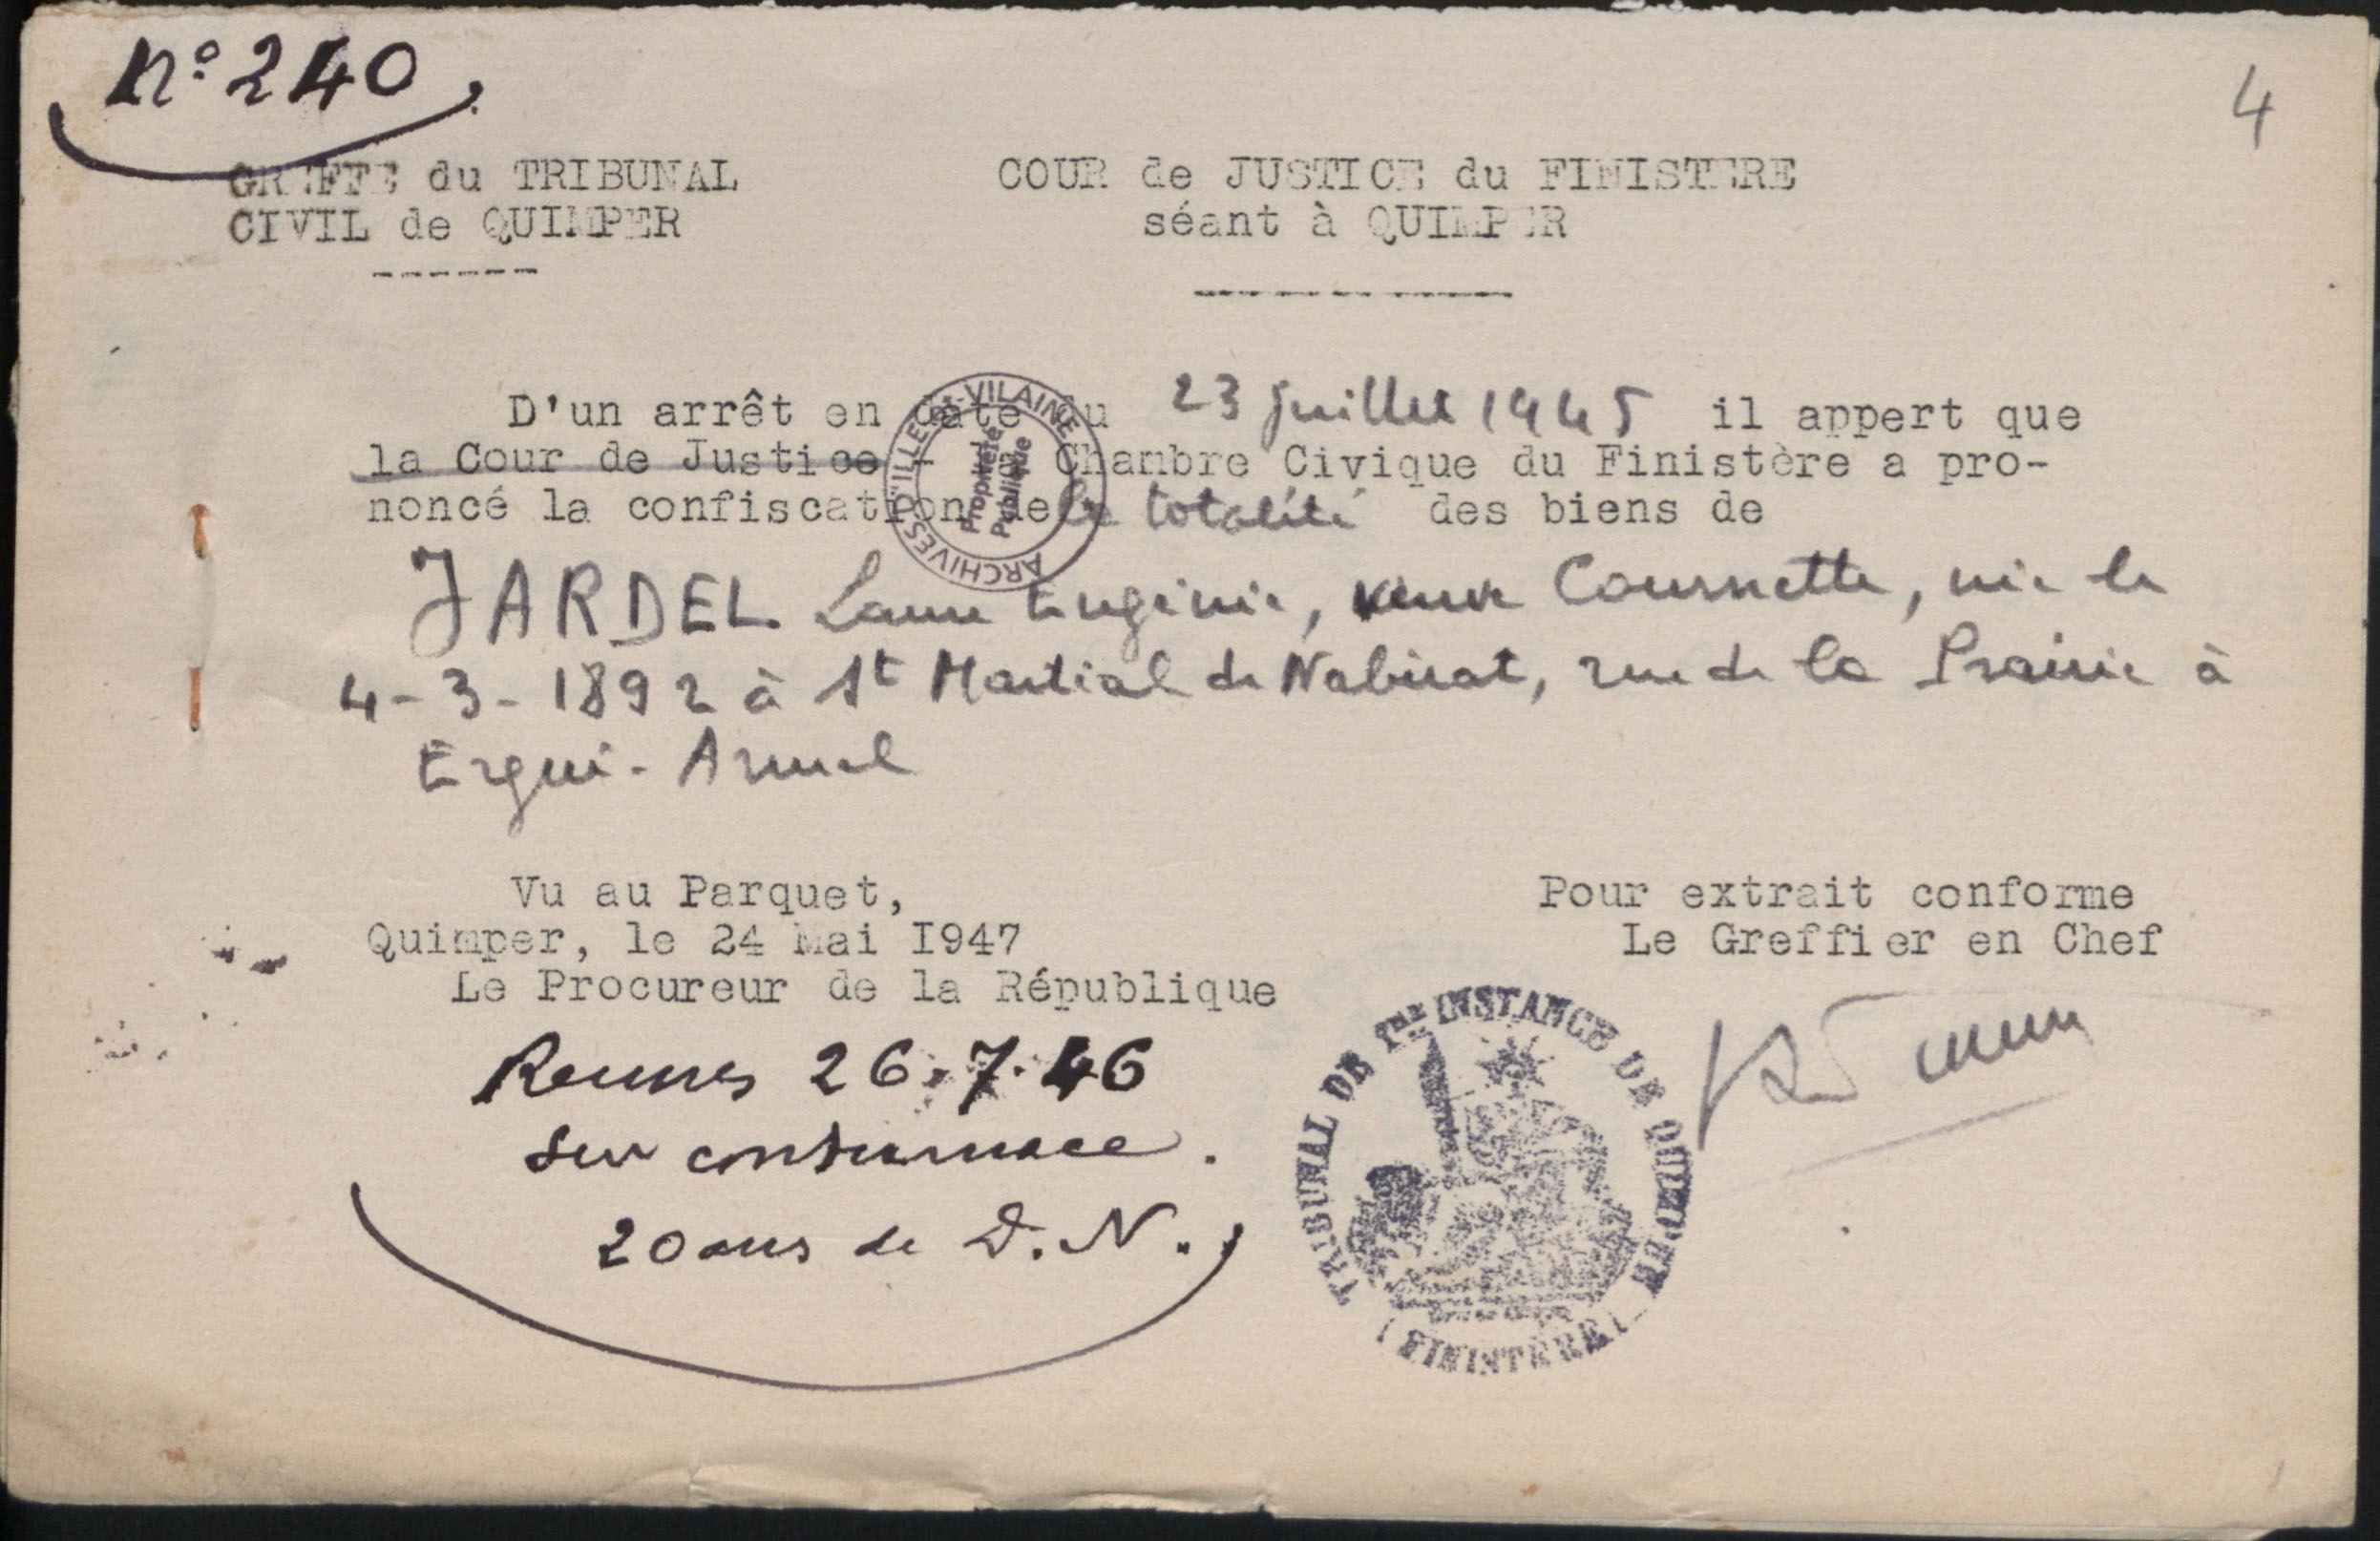 N° 240
4
GREFFE du TRIBUNAL
CIVIL de QUIMPER
COUR de JUSTICE du FINISTERE
séant à QUIMPER
D'un arrêt en date du 23 juillet 1945 il appert que
la Cour de Justice - Chambre Civique du Finistère a pro-
noncé la confiscation de la totalité des biens de
JARDEL Laure Eugénie, veuve Cournette, née le
4-3-1892 à St Martial de Nabirat, rue de la Prairie à
Ergué-Armel
ARCHIVES D'ILLE-&-VILAINE
Propriété
Publique
Vu au Parquet,
Quimper, le 24 Mai I947
Le Procureur de la République
Pour extrait conforme
Le Greffier en Chef
Rennes 26.7.46
sur contumace.
20 ans de D.N.
TRIBUNAL DE 1ère INSTANCE DE QUIMPER
(FINISTÈRE)